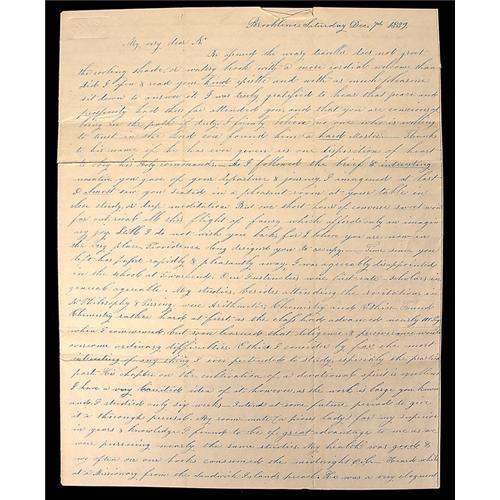 Brookline Saturday Dec 7th 1839
My very dear
the cooling shade, or watery brook with a more cordial welcome than
did I open & read your kind epistle and with as much pleasure
sit down to answer it. I was truly gratified to hear that peace and
prosperity had thus far attended you, and that you are conscious of
being in the path of duty. I firmly believe no one who is willing
to trust in the Lord ever found him a hard Master. Thanks
to his name if he has ever given us a disposition of heart
to obey his Holy commands. As I followed the brief & interesting
you gave of your departure & journey, I imagined at last
I almost saw you seated in a pleasant room at your table in
close study, or deep meditation. But one short hour of converse sweet would
far outweigh all this flight of fancy which affords only an imaginary
joy. Still I do not wish you back for I hope you are now in
the very place Providence long designed you to occupy. Time since you
left has passed rapidly & pleasantly away. I was agreeably disappointed
in the school at Townsend. Our Instructors were first rate scholars in
general agreeable. My studies, besides attending the recitations in
N Philosophy & Parsing were Arithmetic, Chemistry and Ethics. Found
Chemistry rather hard at first as the class had advanced nearly
when I commenced, but soon learned that diligence & perseverance would
overcome ordinary difficulties. Ethics I consider by far the most
interesting of anything I ever pretended to study, especially the practical
part. His chapter on the cultivation of a devotional spirit is excellent
I have a very idea of it however, as the work is large you know
and I studied only six weeks. Intend at some future period to give
it a thorough perusal. My room mate (a pious lady) far my superior
in years & knowledge I found to be of great advantage to me as we
were pursuing nearly the same studies. My health was good &
we often on our books consumed the midnight oil. Heard while
at a Missionary from the Sandwich Islands preach. He was a very eloquent